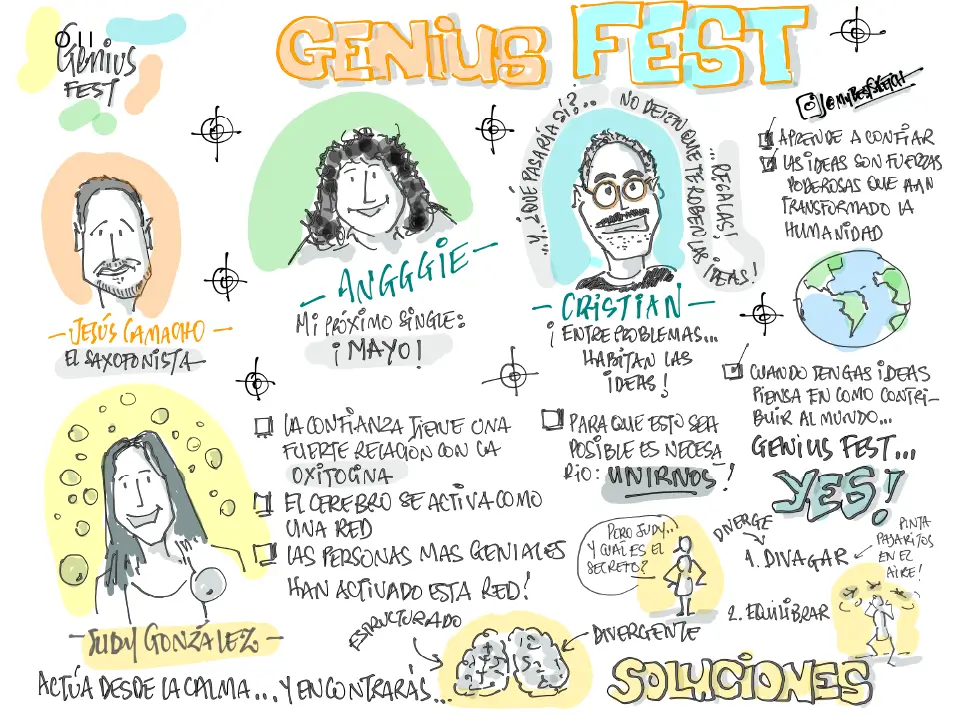 Genius
FEST
GENIUS FEST
@MYBESTSKETCH
JESÚS CAMACHO
EL SAXOFONISTA
ANGGGIE
MI PRÓXIMO SINGLE:
¡MAYO!
...Y...¿QUÉ PASARÍA SÍ?...
NO DEJEN QUE TE ROBEN LAS IDEAS!
...REGALAS!
CRISTIAN
¡ENTRE PROBLEMAS...
HABITAN LAS
IDEAS!
APRENDE A CONFIAR
LAS IDEAS SON FUERZAS
PODEROSAS QUE HAN
TRANSFORMADO LA
HUMANIDAD
CUANDO TENGAS IDEAS
PIENSA EN COMO CONTRI-
BUIR AL MUNDO...
GENIUS FEST...
YES!
JUDY GONZÁLEZ
LA CONFIANZA TIENE UNA
FUERTE RELACIÓN CON LA
OXITOCINA
EL CEREBRO SE ACTIVA COMO
UNA RED
LAS PERSONAS MAS GENIALES
HAN ACTIVADO ESTA RED!
PARA QUE ESTO SEA
POSIBLE ES NECESA
RIO: UNIRNOS!
PERO JUDY...
Y CUAL ES EL
SECRETO?
DIVERGE
1. DIVAGAR
PINTA
PAJARITOS
EN EL
AIRE!
2. EQUILIBRAR
ESTRUCTURADO
DIVERGENTE
ACTÚA DESDE LA CALMA... Y ENCONTRARÁS...
SOLUCIONES